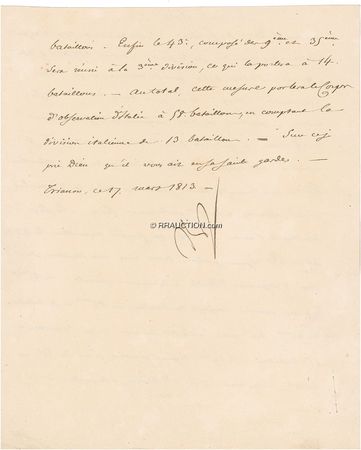 bataillons. Enfin le 43e, composé des 9ème et 35ème
sera réuni à la 3ème division, ce qui la portera à 14
bataillons. — Au total, cette mesure portera le Corps
d'observation d'Italie à 58 bataillons, en comptant la
division italienne de 13 bataillons. — Sur ce, je
prie Dieu qu'il vous ait en sa sainte garde. —
Trianon, ce 17 mars 1813 —
© RRAUCTION.COM